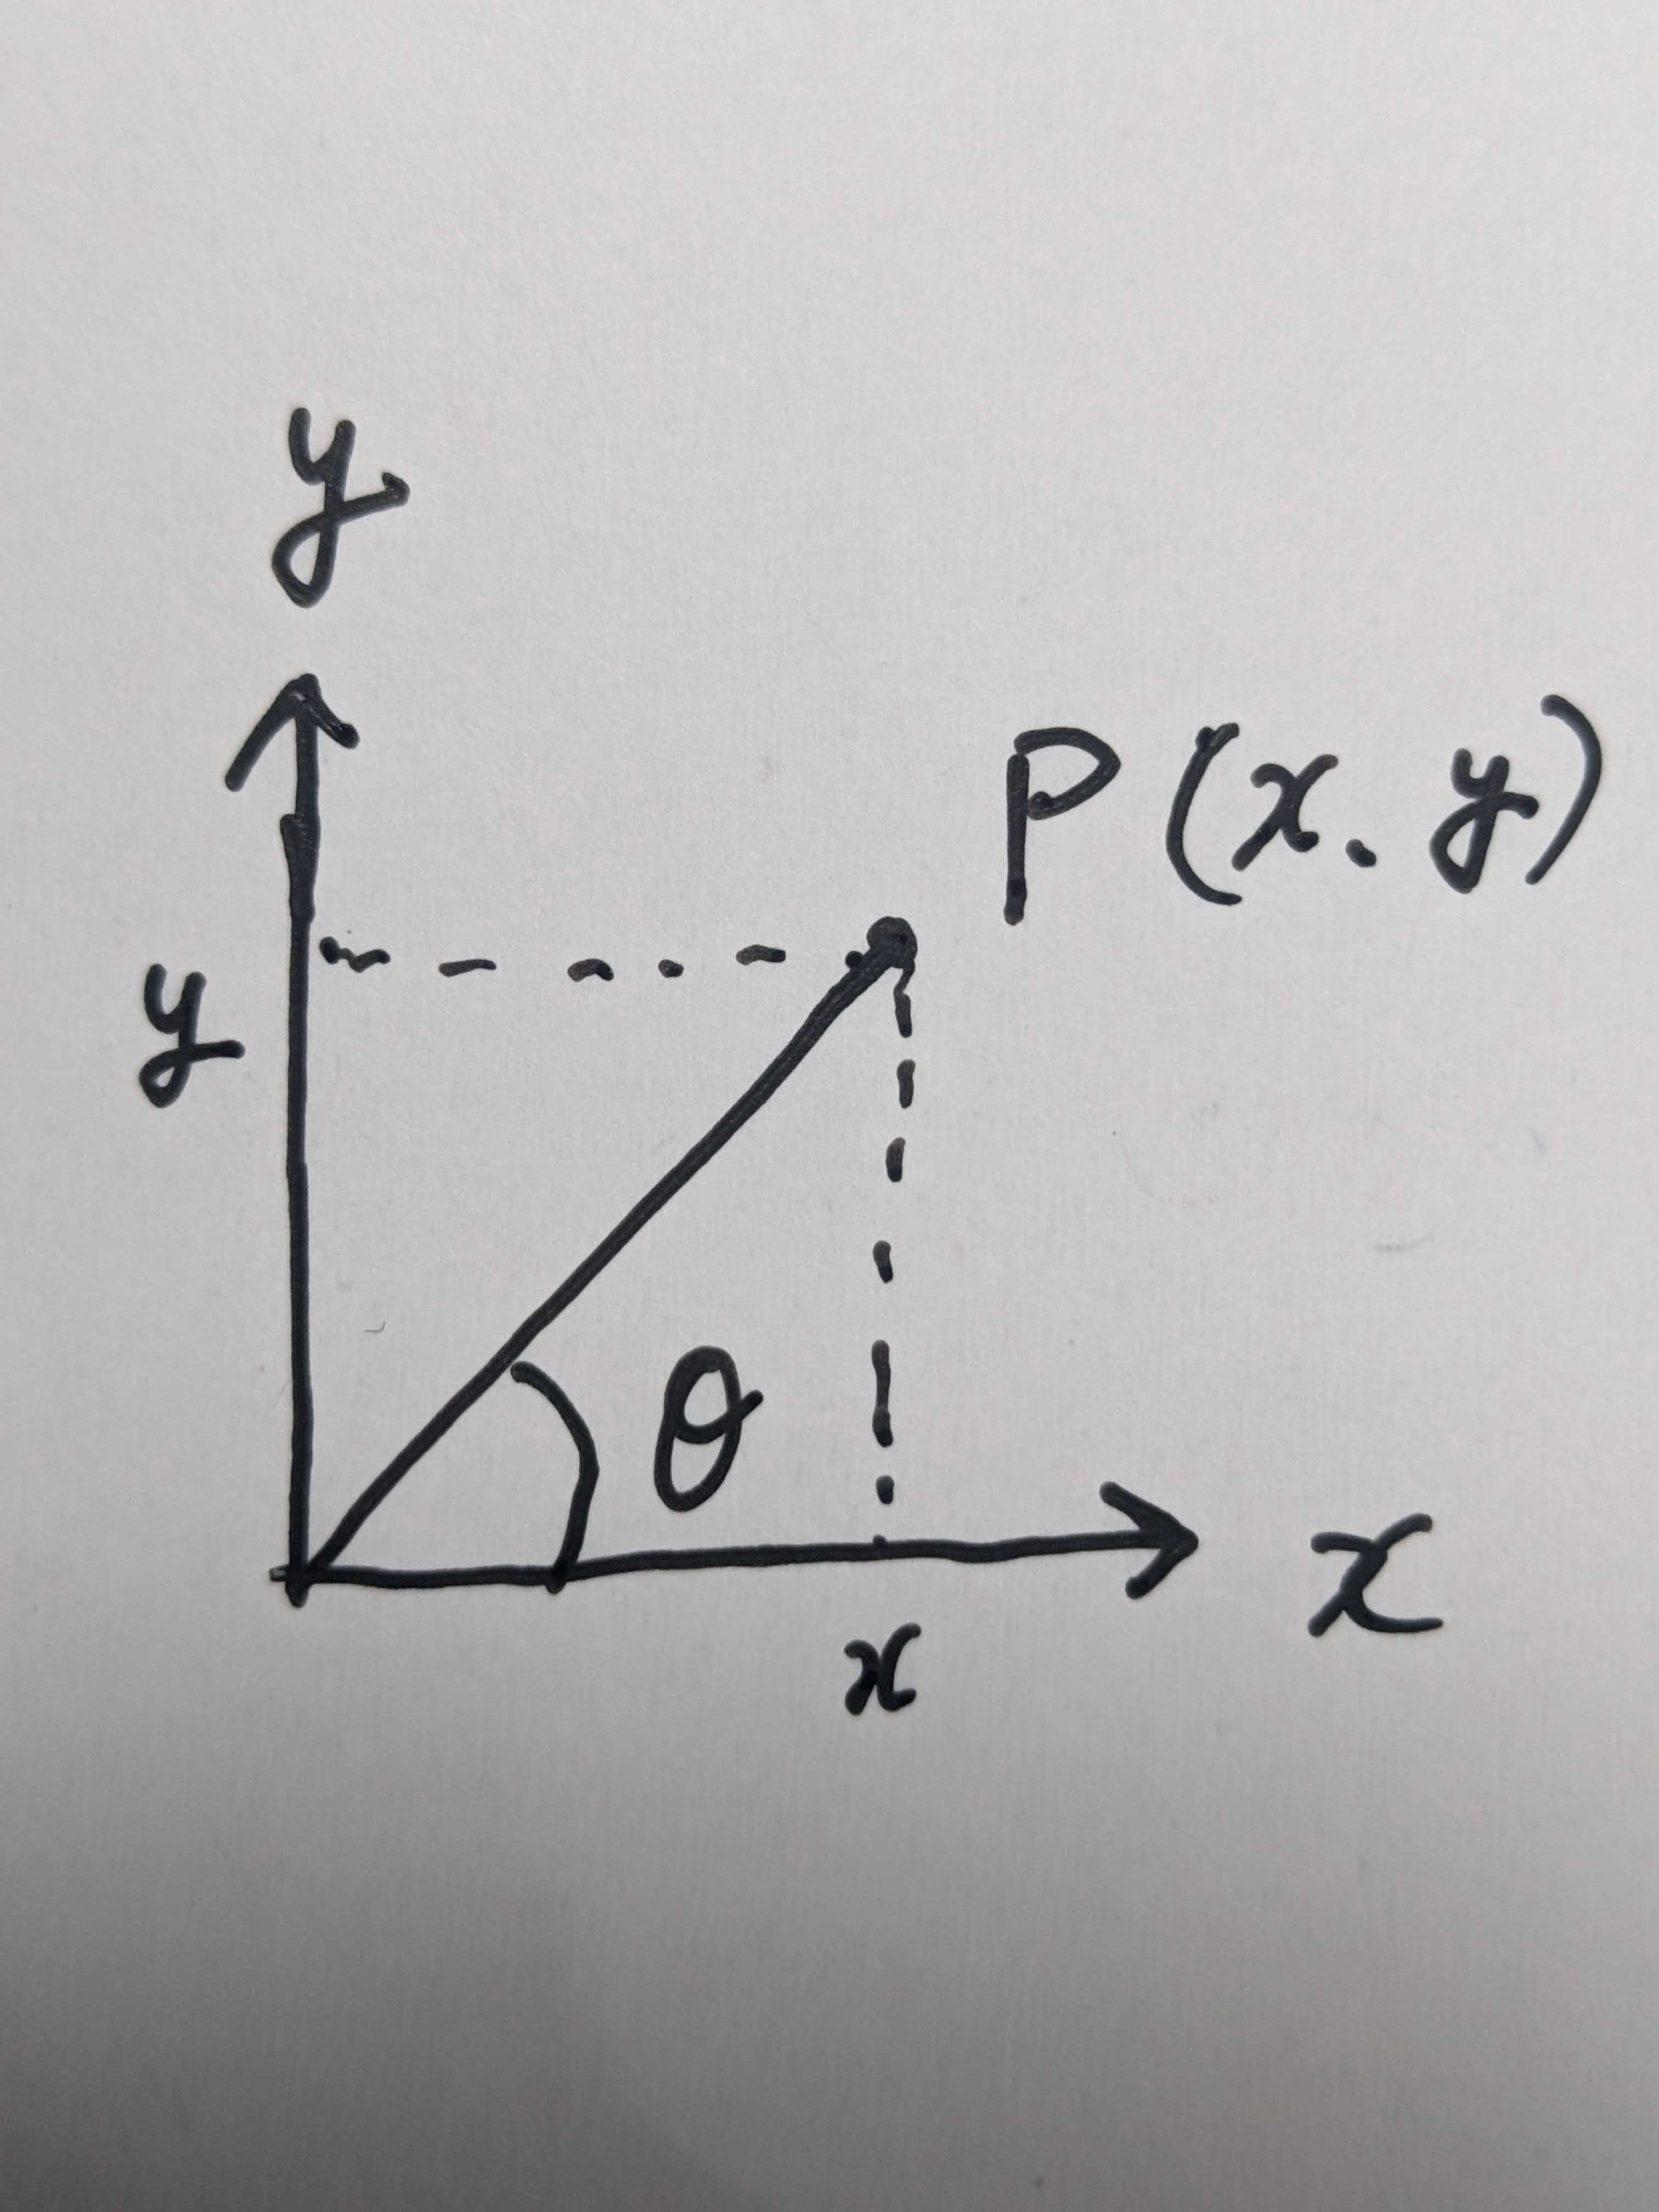 y
P(x. y)
y
θ
x
x